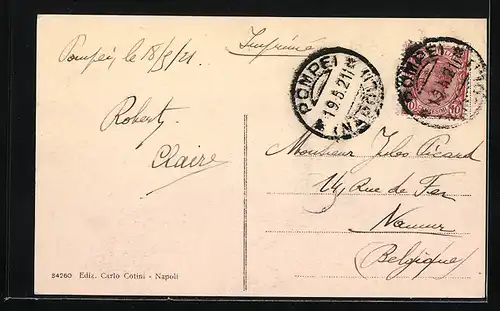 Pompei, le 18/5/21
Imprimé
Robert
Claire
POMPEI
19.5.21
(NAPOLI)
POMPEI
(NAPOLI)
10
10
Monsieur Jules Picard
14, Rue de Fer
Namur
(Belgique)
84260 Ediz. Carlo Cotini - Napoli